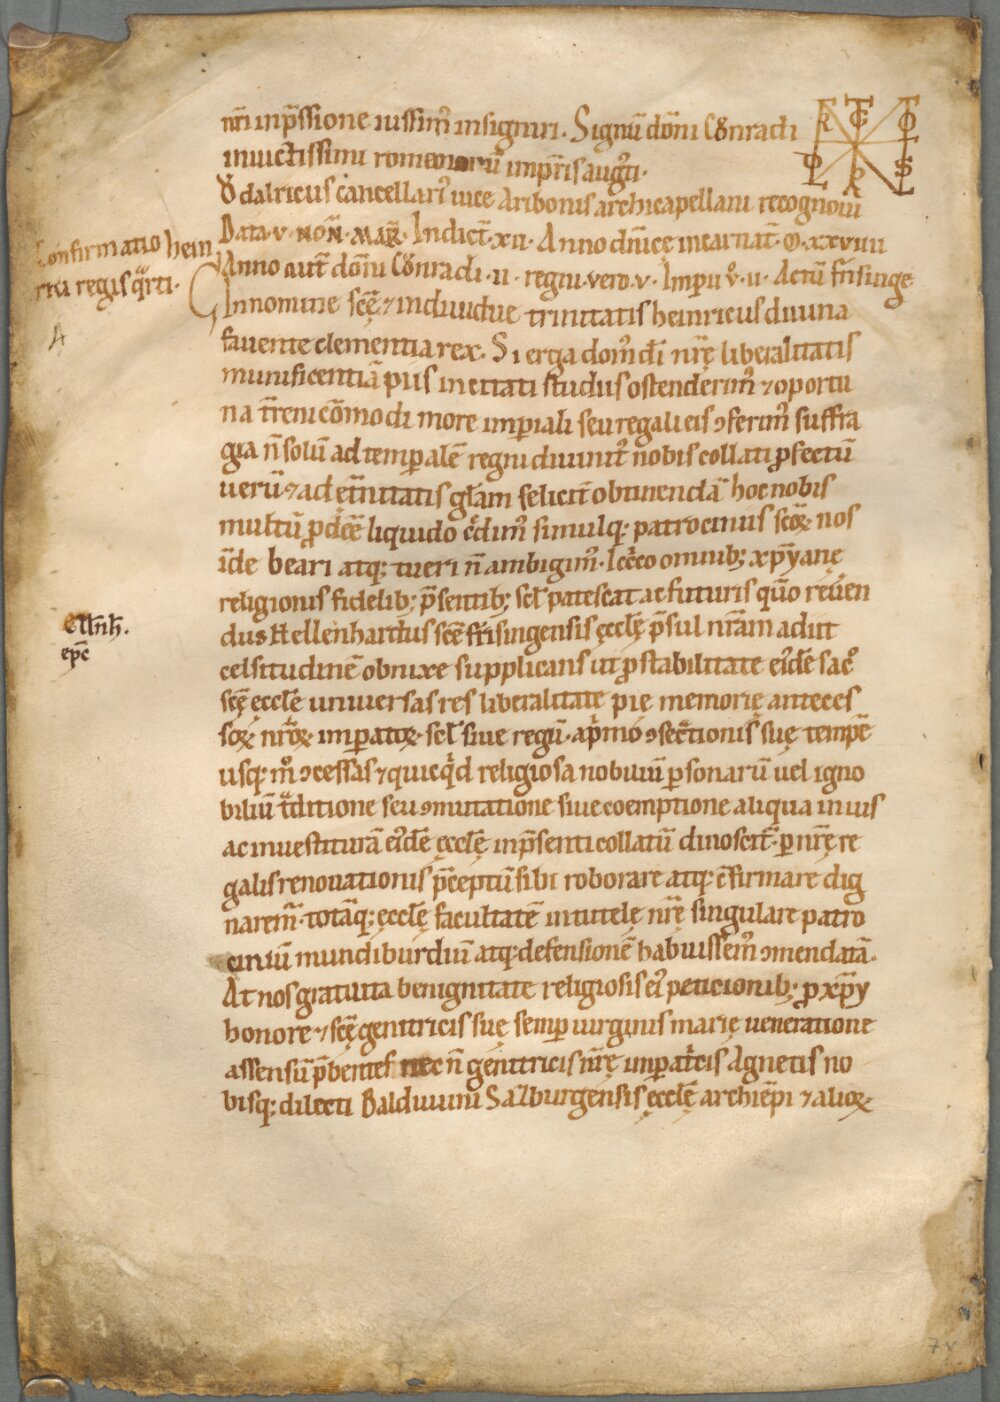 nr̄i inp̄ssione iussim᷒ insigniri. Signū dom̄i Cȯnradi
invictissimi romanorū imp̄ris aug̾ti.
Ůdalricus cancellari᷒ vice Aribonis archicapellani recognovi
Data·v·NON̄·MAR̄·Indict̄·xii·Anno dn̄icę incarnat̄·ꝏ·xxviiii
Confirmatio hein
rici regis qͣrti·
Anno aut̄ dom̄i Cȯnradi·ii·regni·vero·v·Imperii v̊·ii·Actū fri̾singe
A
In nomine sc̄ę ⁊ individuę trinitatis heinricus divina
favente clementia rex. Si erga domū dī nr̄ę liberalitatis
munificentiā piis in etati studiis ostenderim᷒ ⁊ oportu
na t̾reni cōmodi more imp̄iali seu regali eis ɔferim᷒ suffra
gia n̄ solū ad temp̄alē regni divinit᷒ nobis collati ꝓfectū
verū ⁊ ad et̾nitatis gl̄am felicit̾ obtinendā hoc nobis
multū ꝓdēē liquido c̾dim᷒ simulq; patrociniis sc̄oꝝ nos
īde beari atq; tueri n̄ ambigim᷒. Icc̾co omnib; xp̄ianę
religionis fidelib; p̄sentib; scl̄ patescat ac futuris qūo reven
Ellnh̄.
ep̄c
dus Hellenhardus sc̄ę fri̾singensis ęccl̄ę p̄sul nr̄am adiit
celsitudinē obnixe supplicans ut ꝓ stabilitate ei᷒dē sac̊
sc̄ę eccl̄e universas res liberalitate pie memorię anteces
soꝝ nr̄oꝝ imp̄atoꝝ scl̄ sive regū·a pͥmo ɔsec̾tionis suę temp̄e
usq; m̊ ɔcessas ⁊ quicqͥd religiosa nobiliū p̄sonarū vel igno
biliū tͣditione seu ɔmutatione sive coemptione aliqua in ius
ac investiturā ei᷒dē ęccl̄ę inp̄senti collatū dinoscit̾·ꝑ nr̄ę re
galis renovationis p̄ceptū sibi roborare atq; c̄firmare dig
narem̾·totāq; ęccl̄ę facultatē in tutelę nr̄ę singulare patro
ciniū mundiburdiū atq; defensionē habuissem᷒ ɔmendatā·
At nos gratuita benignitate religiosis ei᷒ peticionib; ꝓ xp̄i
honore ⁊ sc̄ę genitricis suę semp̄ virginis marię veneratione
assensū p̄bentes nec n̄ genitricis nr̄ę imp̄at̾cis Agnetis no
bisq; dilecti Balduuini Salburgensis ęccl̄ę archiep̄i ⁊ alioꝝ
7v